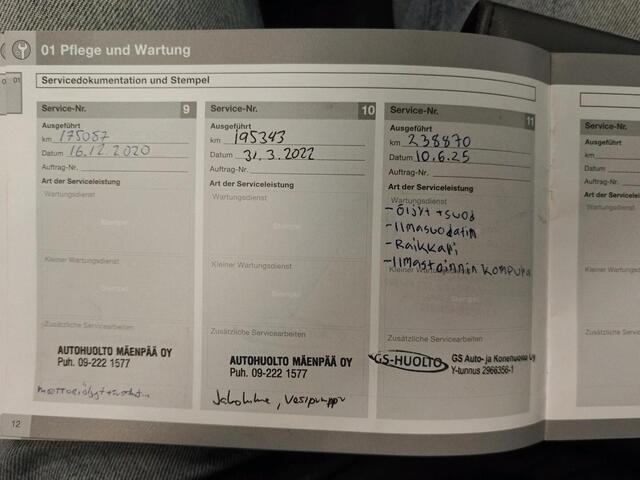 01 Pflege und Wartung
Servicedokumentation und Stempel
Service-Nr. 9
Ausgeführt
km 175087
Datum 16.12.2020
Auftrag-Nr.
Art der Serviceleistung
Wartungsdienst
Kleiner Wartungsdienst
Stempel
Zusätzliche Servicearbeiten
AUTOHUOLTO MÄENPÄÄ OY
Puh. 09-222 1577
Service-Nr. 10
Ausgeführt
km 195343
Datum 31.3.2022
Auftrag-Nr.
Art der Serviceleistung
Wartungsdienst
Kleiner Wartungsdienst
Stempel
Zusätzliche Servicearbeiten
AUTOHUOLTO MÄENPÄÄ OY
Puh. 09-222 1577
Jakohihna, Vesipumppu
Service-Nr. 11
Ausgeführt
km 238870
Datum 10.6.25
Auftrag-Nr.
Art der Serviceleistung
Wartungsdienst
-Öljyt + suod
-Ilmasuodatin
-Raikkari
-Ilmastoinnin kompura
Kleiner Wartungsdienst
Stempel
Zusätzliche Servicearbeiten
GS-HUOLTO GS Auto- ja Konehuolto Oy
Y-tunnus 2966356-1
Service-Nr.
Ausgeführt
km
Datum
Auftrag-Nr.
Art der Serviceleis
Wartungsdienst
Kleiner Wartungsd
Zusätzliche Servi
12